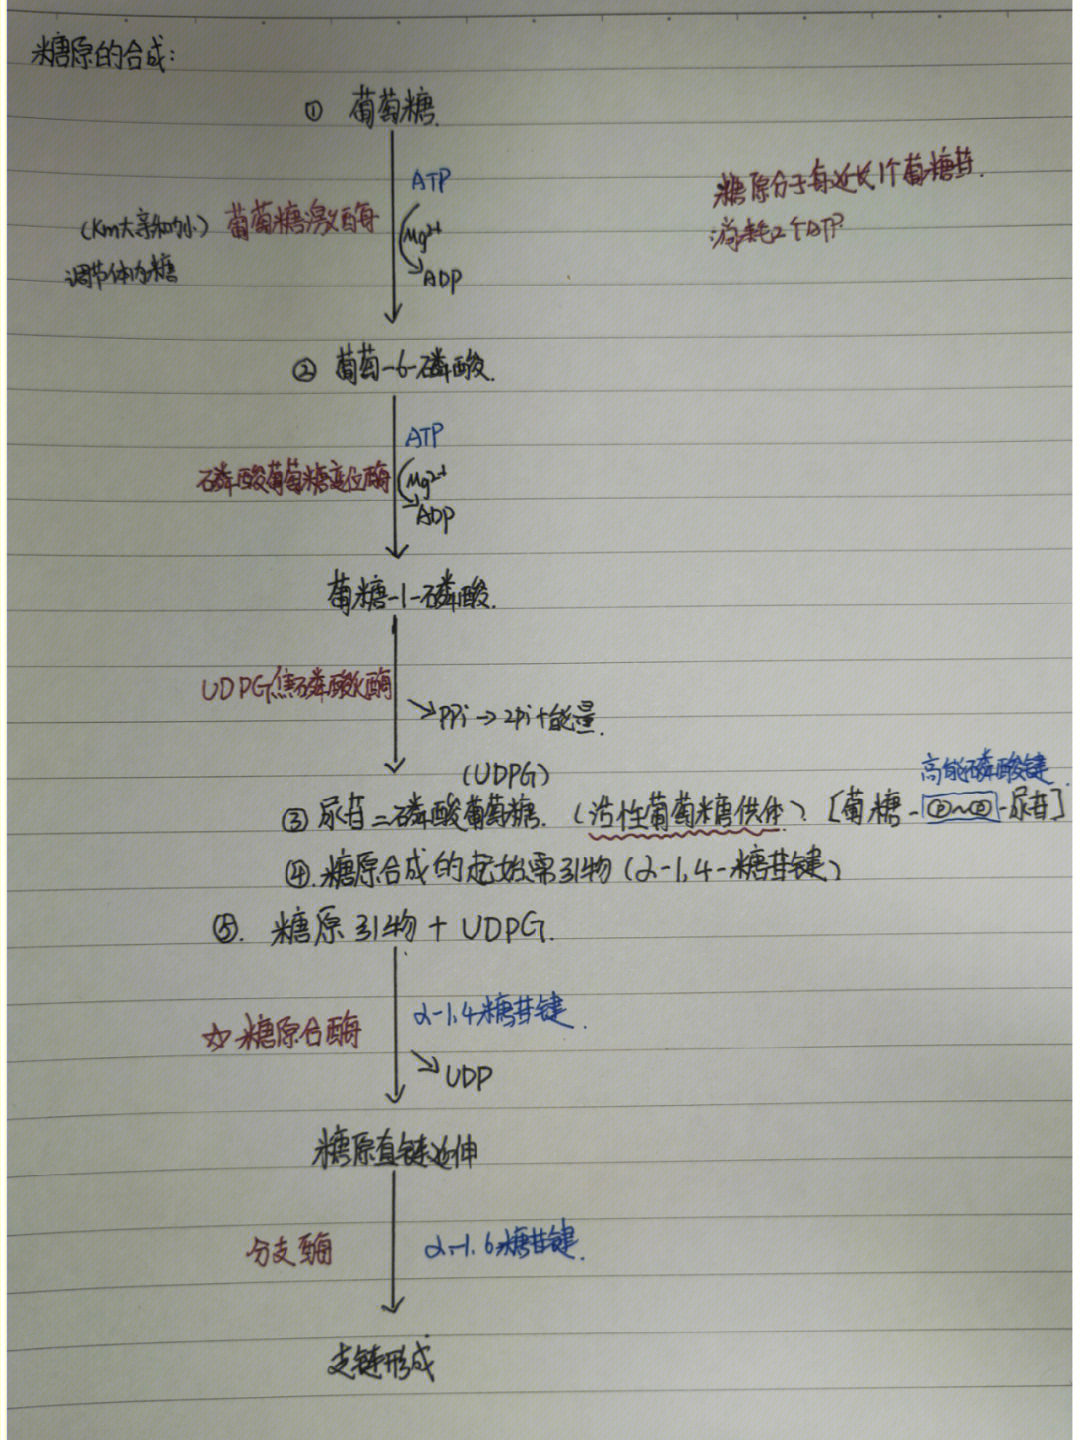 糖原的合成:
① 葡萄糖.
ATP
糖原分子每延长1个葡糖苷.
(Km大亲和力小) 葡萄糖激酶
Mg²⁺
消耗2个ATP
调节体内糖
ADP
② 葡萄-6-磷酸.
ATP
磷酸葡萄糖变位酶
Mg²⁺
ADP
葡糖-1-磷酸.
UDPG焦磷酸化酶
PPi→2Pi+能量.
(UDPG)
高能磷酸键
③ 尿苷二磷酸葡萄糖. (活性葡萄糖供体) [葡糖-Ⓟ~Ⓟ-尿苷]
④. 糖原合成的起始需引物(α-1,4-糖苷键)
⑤. 糖原引物 + UDPG.
α-1.4糖苷键.
☆糖原合酶
UDP
糖原直链延伸
分支酶
α-1.6糖苷键.
支链形成